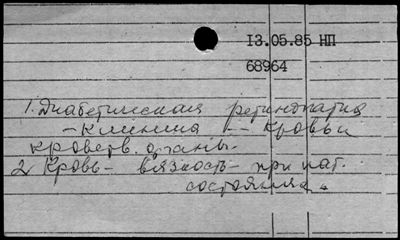 13.05.85 НП
68964
1. Диабетическая ретинопатия
- Клиника -- Кровь и
кроветв. органы.
2. Кровь - вязкость - при пат.
состояниях.